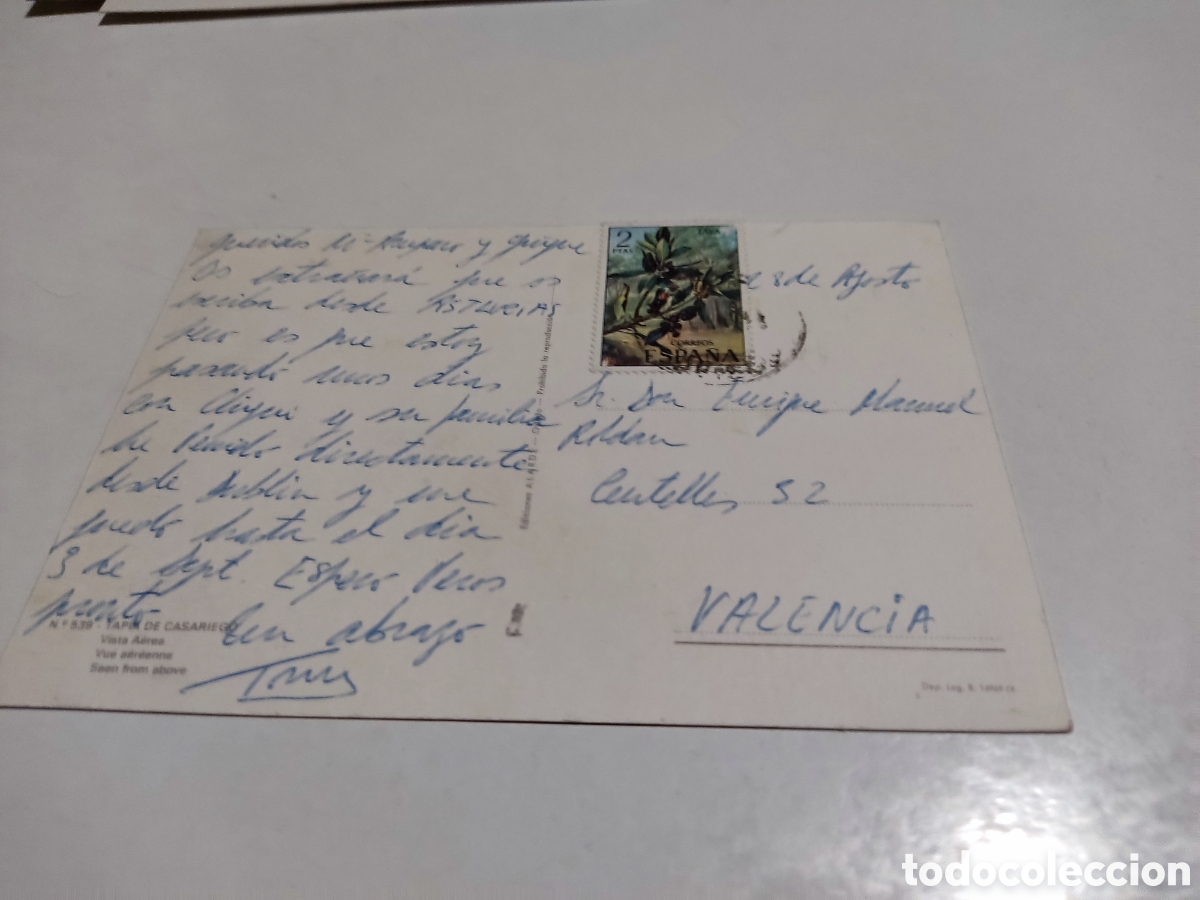 queridos Mª Amparo y quique
Os extrañará que os
escriba desde ASTURIAS
pero es que estoy
pasando unos dias
con Chiqui y su familia
he Venido directamente
desde Dublin y me
quedo hasta el dia
3 de sept. Espero Veros
pronto Un abrazo
N.º 539 - TAPIA DE CASARIEGO
Vista Aérea
Vue aérienne
Seen from above
Prohibida la reproducción
2
PTAS
CORREOS
ESPAÑA
8 de Agosto
Sr. Don Enrique Manuel
Roldan
Centelles 32
VALENCIA
todocoleccion